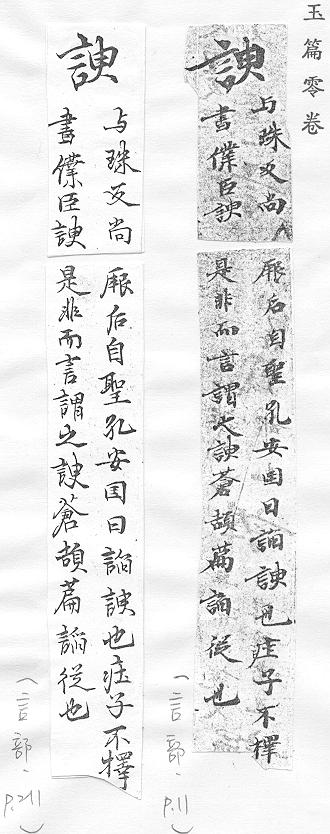 玉篇零卷
諛
与珠反尚
書僕臣諛
厥后自聖孔安囯曰諂諛也庄子不擇
是非而言謂之諛蒼頡篇諂從也
(言部、p.11)
諛
与珠反尚
書僕臣諛
厥后自聖孔安囯曰諂諛也庄子不擇
是非而言謂之諛蒼頡篇諂從也
(言部、p.211)